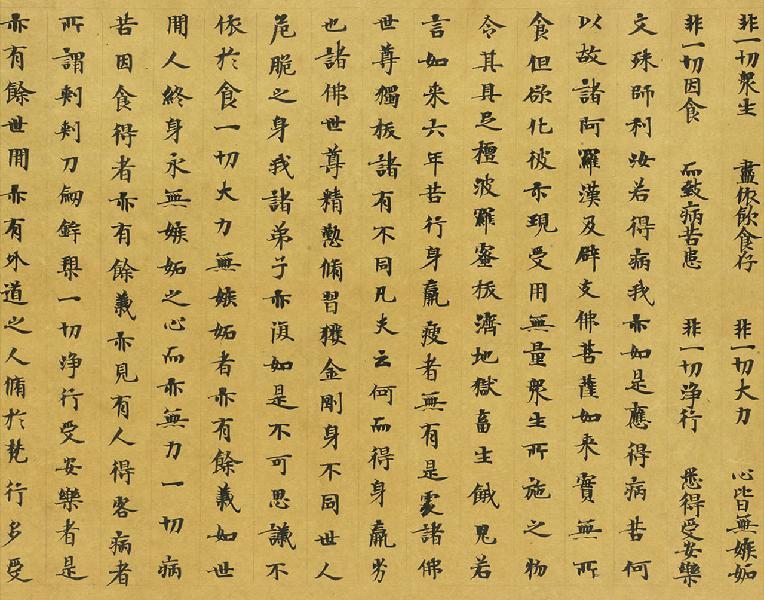 非一切衆生 盡依飲食存 非一切大力 心皆無嫉妬
非一切因食 而致病苦患 非一切淨行 悉得受安樂
文殊師利汝若得病我亦如是應得病苦何
以故諸阿羅漢及辟支佛菩薩如来實無所
食但欲化彼亦現受用無量衆生所施之物
令其具足檀波羅蜜拔濟地獄畜生餓鬼若
言如来六年苦行身羸瘦者無有是處諸佛
世尊獨拔諸有不同凡夫云何而得身羸劣
也諸佛世尊精懃脩習獲金剛身不同世人
危脆之身我諸弟子亦復如是不可思議不
依於食一切大力無嫉妬者亦有餘義如世
間人終身永無嫉妬之心而亦無力一切病
苦因食得者亦有餘義亦見有人得客病者
所謂刺刺刀劒鉾槊一切淨行受安樂者是
亦有餘世間亦有外道之人脩於梵行多受